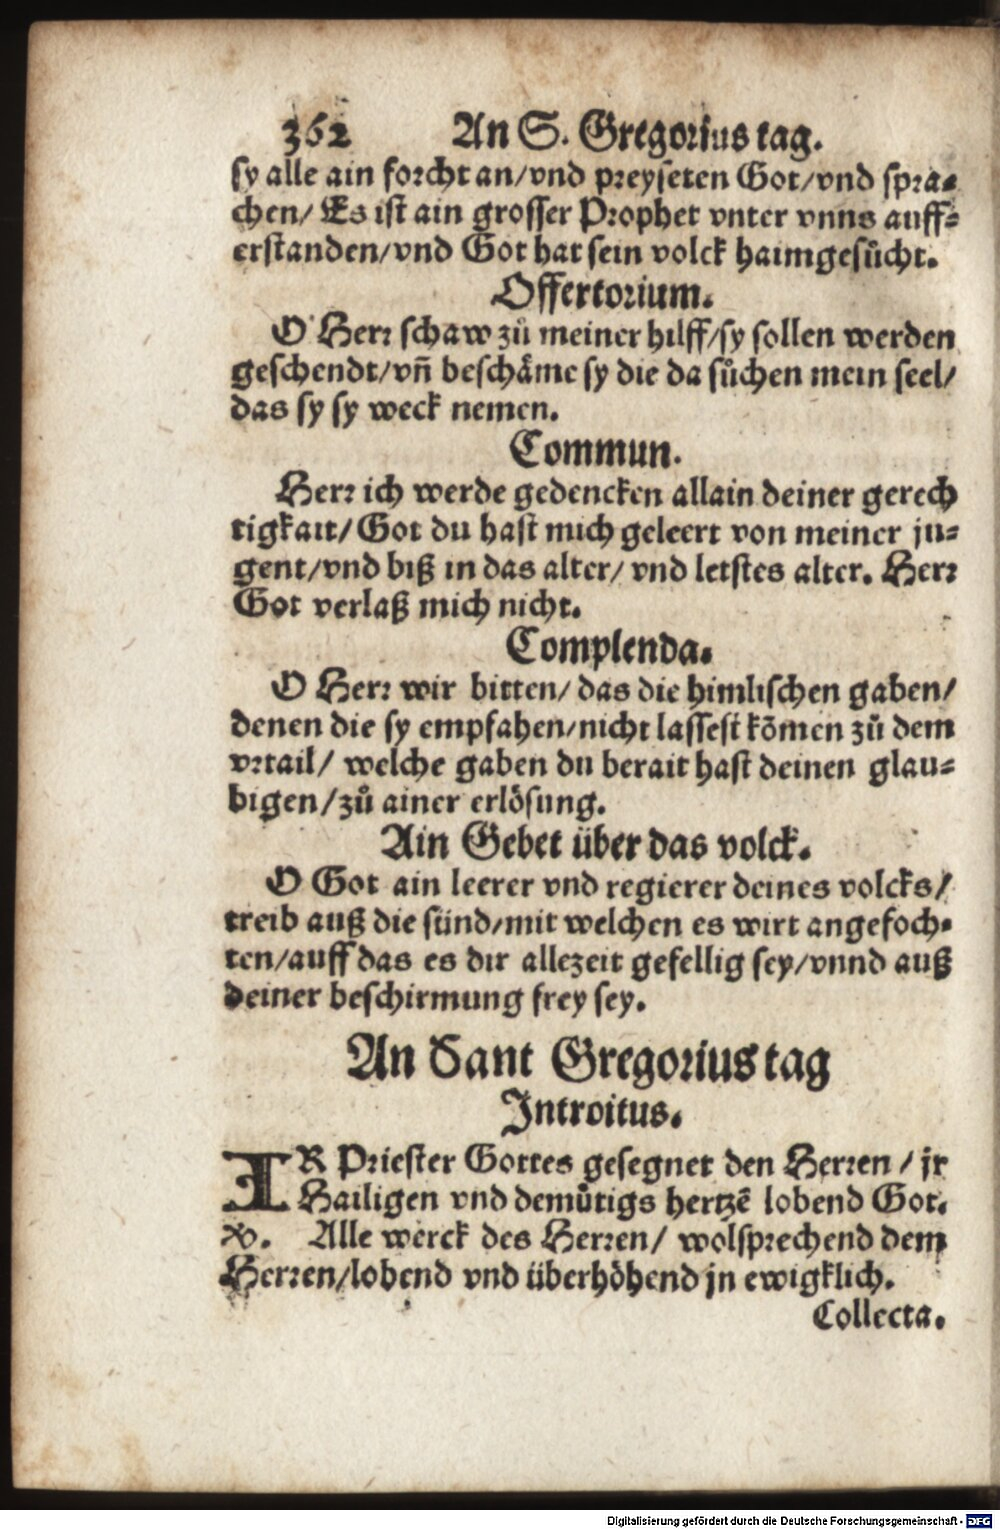 362 An S. Gregorius tag.
sy alle ain forcht an/vnd preyseten Got/vnd spra-
chen/ Es ist ain grosser Prophet vnter vnns auff-
erstanden/vnd Got hat sein volck haimgesůcht.
Offertorium.
O Herr schaw zů meiner hilff/sy sollen werden
geschendt/vñ beschäme sy die da sůchen mein seel/
das sy sy weck nemen.
Commun.
Herr ich werde gedencken allain deiner gerech
tigkait/ Got du hast mich geleert von meiner ju-
gent/vnd biß in das alter/ vnd letstes alter. Herr
Got verlaß mich nicht.
Complenda.
O Herr wir bitten/ das die himlischen gaben/
denen die sy empfahen/nicht lassest kōmen zů dem
vrtail/ welche gaben du berait hast deinen glau-
bigen/zů ainer erlösung.
Ain Gebet über das volck.
O Got ain leerer vnd regierer deines volcks/
treib auß die sünd/mit welchen es wirt angefoch-
ten/auff das es dir allezeit gefellig sey/vnnd auß
deiner beschirmung frey sey.
An Sant Gregorius tag
Introitus.
IR Priester Gottes gesegnet den Herren / jr
Hailigen vnd demůtigs hertzē lobend Got.
℣. Alle werck des Herren/ wolsprechend dem
Herren/lobend vnd überhöhend jn ewigklich.
Collecta.
Digitalisierung gefördert durch die Deutsche Forschungsgemeinschaft - DFG